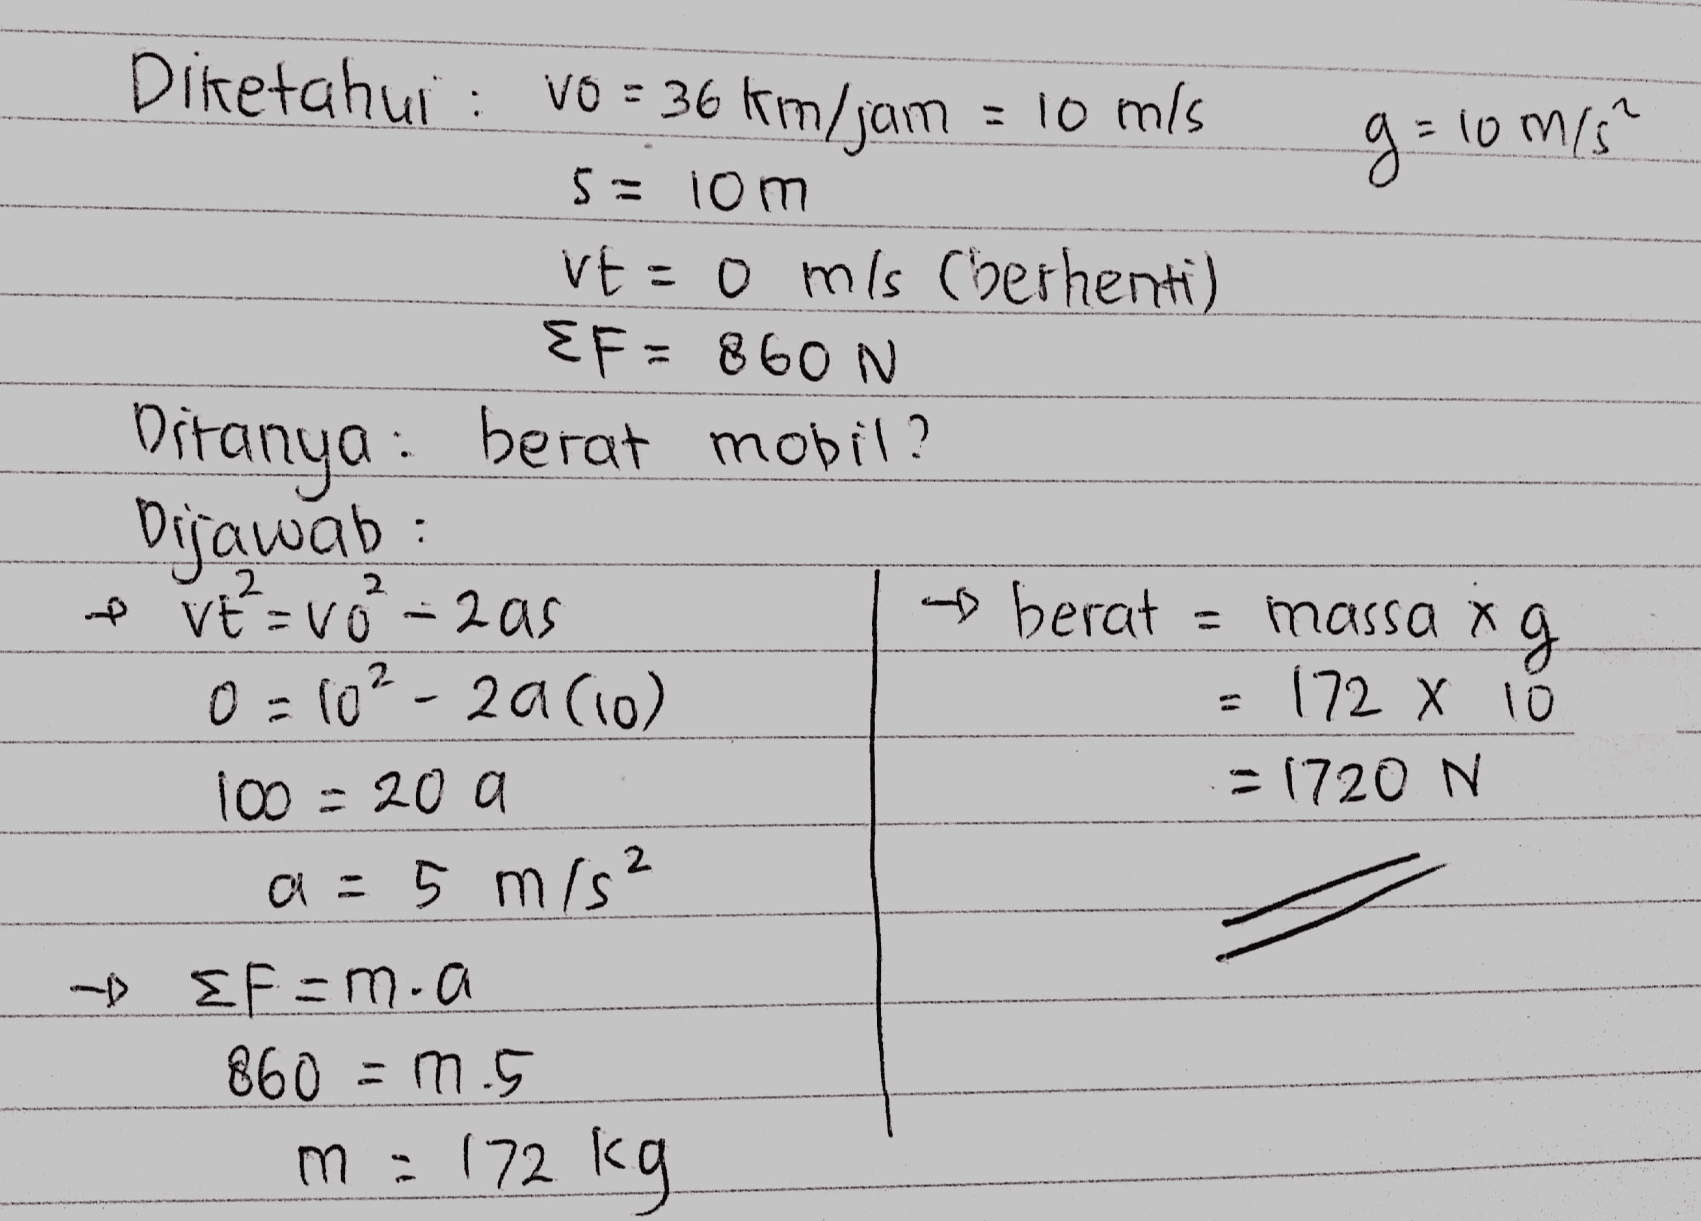 Diketahui : vo = 36 km/jam = 10 m/s g = 10 m/s²
s = 10 m
vt = 0 m/s (berhenti)
ΣF = 860 N
Ditanya : berat mobil?
Dijawab :
→ vt² = vo² - 2as
0 = 10² - 2a(10)
100 = 20 a
a = 5 m/s²
→ ΣF = m.a
860 = m.5
m = 172 kg
→ berat = massa x g
= 172 x 10
= 1720 N